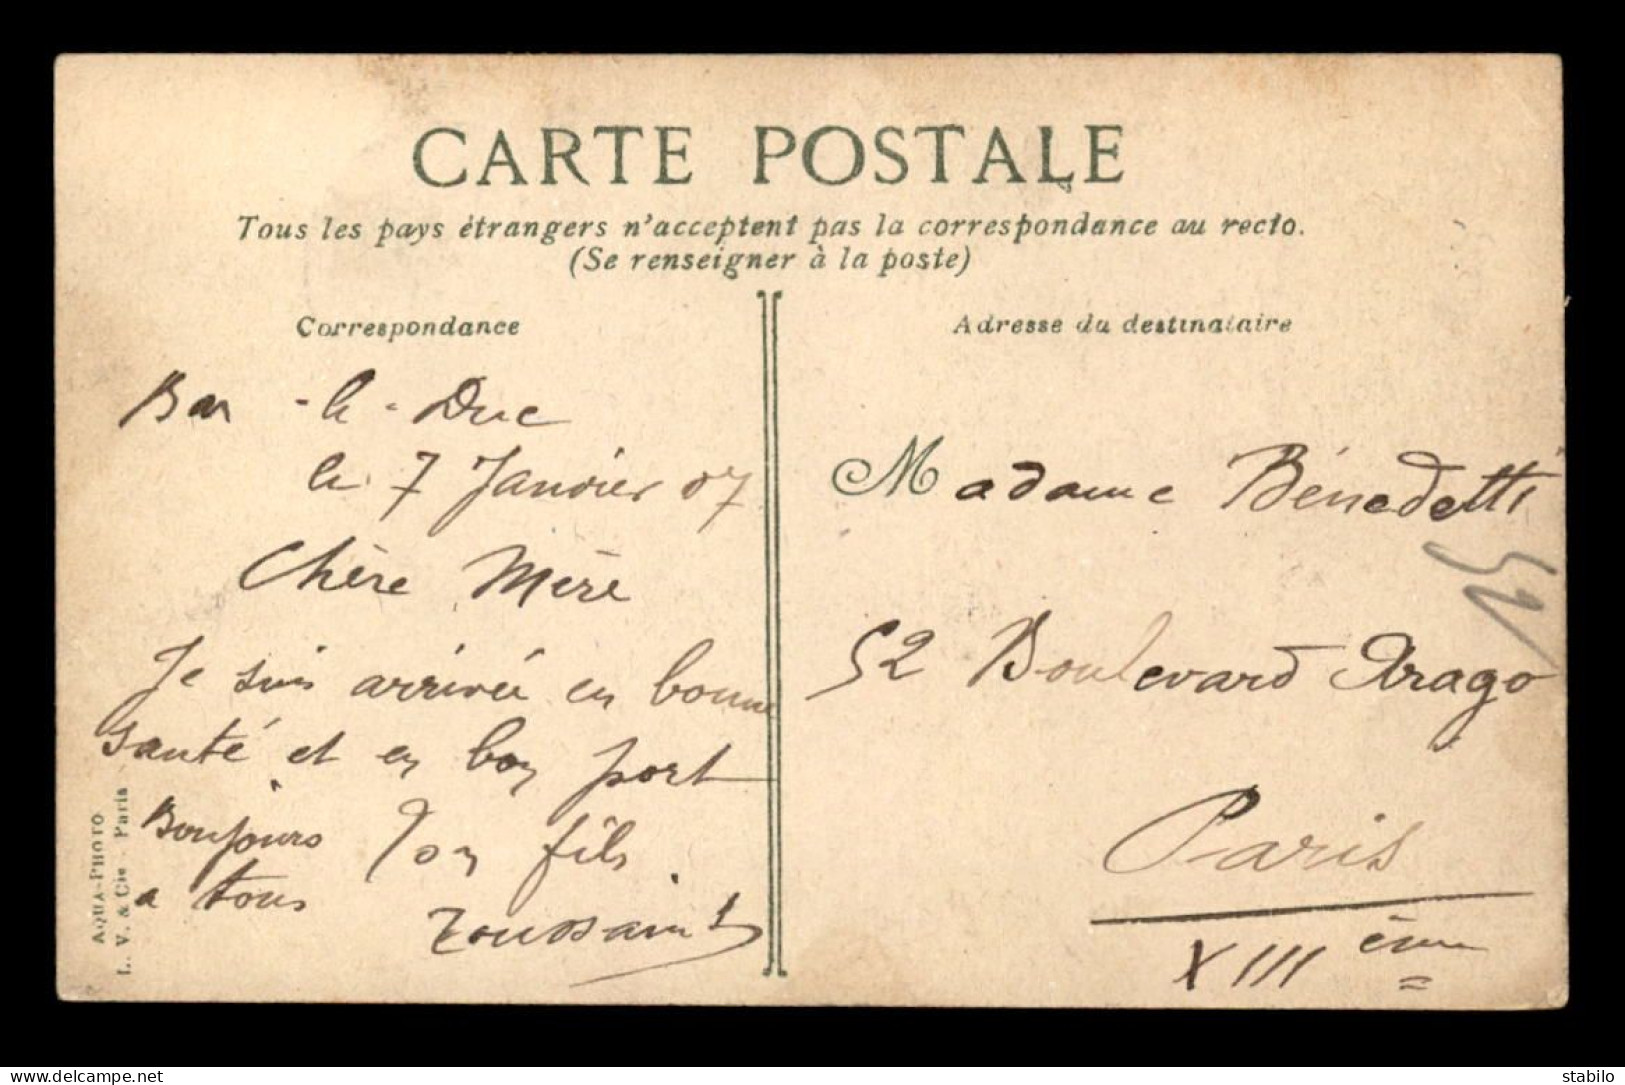 CARTE POSTALE
Tous les pays étrangers n'acceptent pas la correspondance au recto.
(Se renseigner à la poste)
Correspondance
Bar -le- Duc
le 7 Janvier 07
Chère Mère
Je suis arrivée en bonne
santé et en bon port
Bonjours
a tous
Ton fils
Toussaint
AQUA-PHOTO
L. V. & Cie - Paris
Adresse du destinataire
Madame Bénedetti
52 Boulevard Arago
Paris
XIII ème
delcampe.net
stabilo